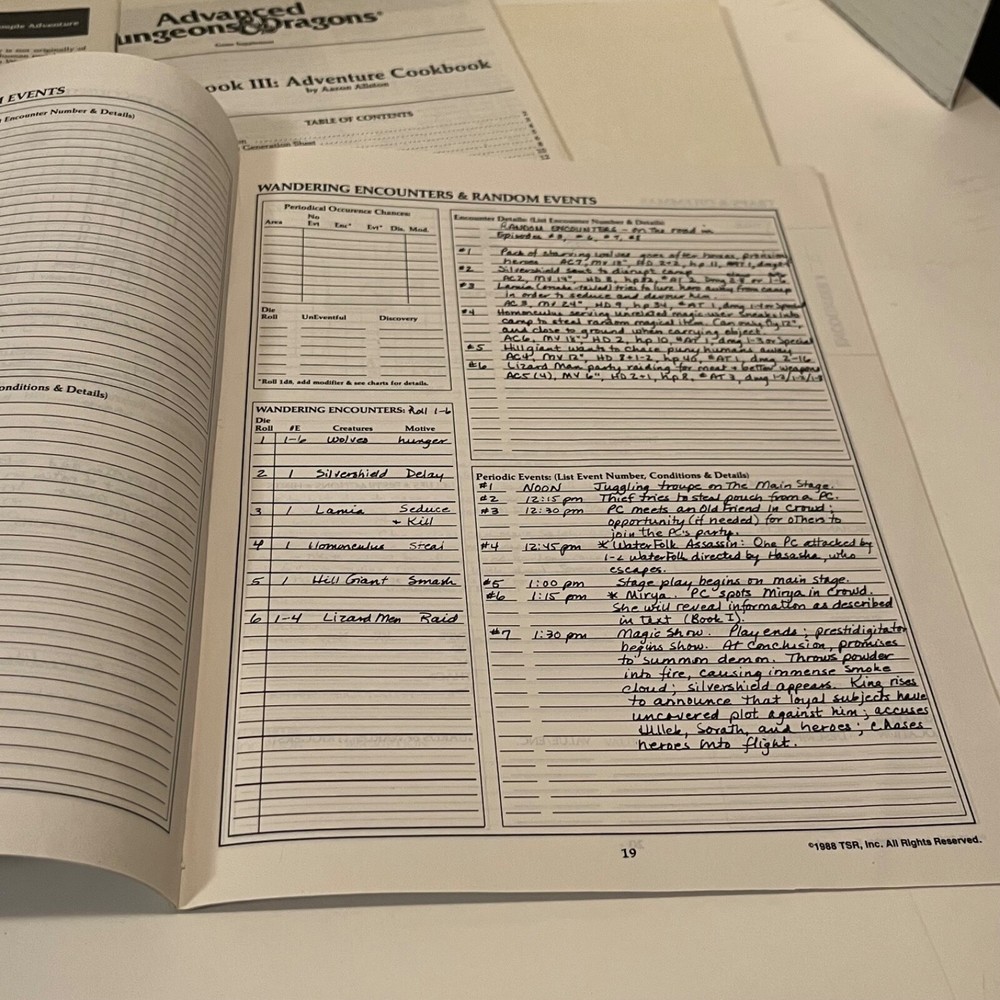 mple Adventure
Advanced
ungeons & Dragons®
Game Supplement
ook III: Adventure Cookbook
by Aaron Allston
TABLE OF CONTENTS
Generation Sheet
EVENTS
Encounter Number & Details)
onditions & Details)
WANDERING ENCOUNTERS & RANDOM EVENTS
Periodical Occurence Chances:
Area No Evt Enc* Evt* Die. Mod.
Die
Roll UnEventful Discovery
*Roll 1d8, add modifier & see charts for details.
WANDERING ENCOUNTERS: Roll 1-6
Die
Roll #E Creatures Motive
1 1-6 Wolves hunger
2 1 Silvershield Delay
3 1 Lamia Seduce
+ Kill
4 1 Homonculus Steal
5 1 Hill Giant Smash
6 1-4 Lizard Men Raid
Encounter Details: (List Encounter Number & Details)
RANDOM ENCOUNTERS - On the road in
Episodes #3, #6, #7, #8
#1 Pack of starving wolves goes after horses, provisions
heroes AC7, MV 18", HD 2+2, hp 11, #AT 1,
#2 Silvershield sent to disrupt camp
AC2, MV HD 8, #AT 2, Dmg 2-8 or 1-6
#3 Lamia (snake-tailed) tries to lure hero away from camp
in order to seduce and devour him.
AC 3, MV 24", HD 9, hp 34, #AT 1, dmg 1-4 or Special
#4 Homonculus serving unrelated magic-user sneaks into
camp to steal random magical item. Can only fly 12",
and close to ground when carrying object.
AC6, MV 18" HD 2, hp 10, #AT 1, dmg 1-3 or Special
#5 Hill giant wants to chase puny humans away
AC4, MV 12", HD 8+1-2, hp 40, #AT 1, dmg 2-16
#6 Lizard Man party raiding for meat + better weapons
AC5 (4), MV 6", HD 2+1, hp 8, #AT 3, dmg 1-2/1-2/1-8
Periodic Events: (List Event Number, Conditions & Details)
#1 NOON Juggling troupe on The Main Stage.
#2 12:15 pm Thief tries to steal pouch from a PC.
#3 12:30 pm PC meets an Old Friend in Crowd;
opportunity (if needed) for others to
join the PC's party.
#4 12:45 pm * WaterFolk Assassin: One PC attacked by
1-2 WaterFolk directed by Hasasha, who
escapes.
#5 1:00 pm Stage play begins on main stage.
#6 1:15 pm * Mirya. PC spots Mirya in Crowd.
She will reveal information as described
in Text (Book I).
#7 1:30 pm Magic Show. Play ends; prestidigitator
begins show. At conclusion, promises
to summon demon. Throws powder
into fire, causing immense smoke
cloud; silvershield appears. King rises
to announce that loyal subjects have
uncovered plot against him; accuses
Ullek, Sorath, and heroes; chases
heroes into flight.
19
©1988 TSR, Inc. All Rights Reserved.